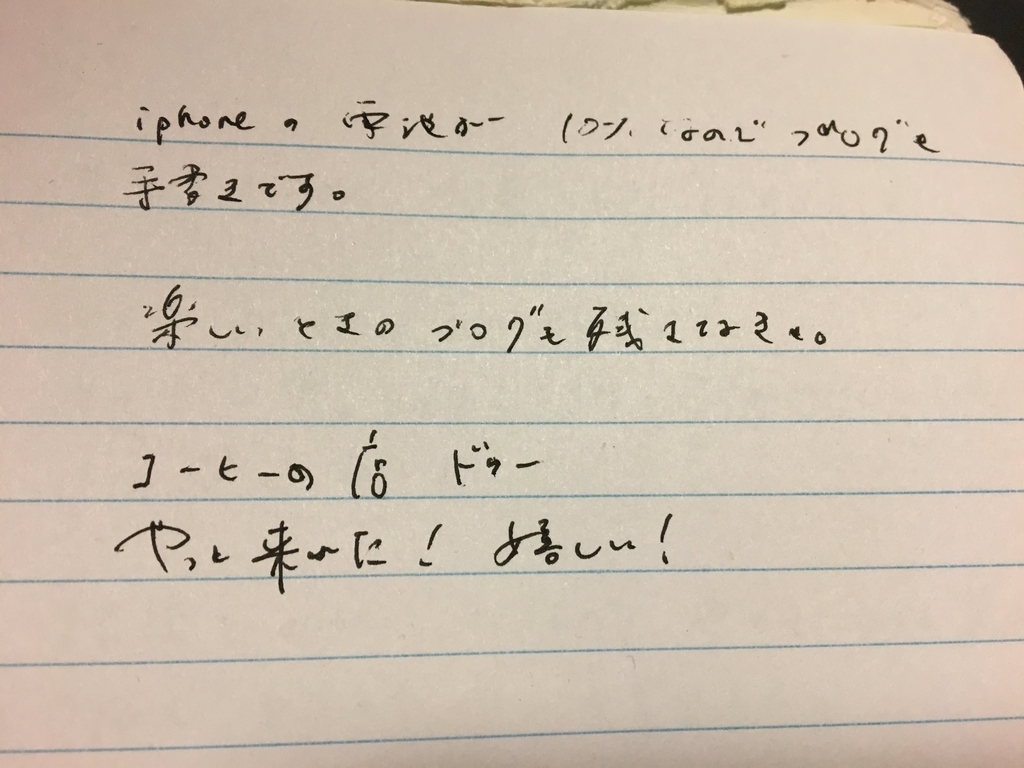 iphoneの電池が 10%なのでブログを
手書きです。
楽しいときのブログを残すてなきゃ。
コーヒーの店 ドゥー
やっと来れた! 嬉しい!